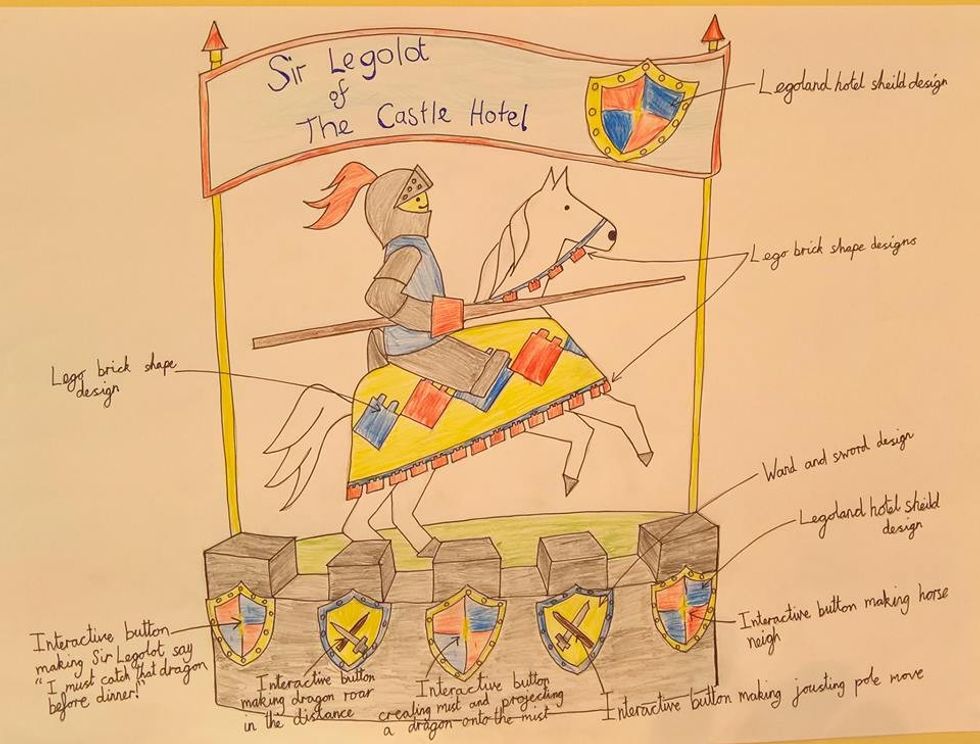 Sir Legolot
of
The Castle Hotel
Legoland hotel sheild design
Lego brick shape designs
Lego brick shape
design
Wand and sword design
Legoland hotel sheild
design
Interactive button making horse
neigh
Interactive button
making Sir Legolot say
"I must catch that dragon
before dinner!"
Interactive button
making dragon roar
in the distance
Interactive button
creating mist and projecting
a dragon onto the mist
Interactive button making jousting pole move